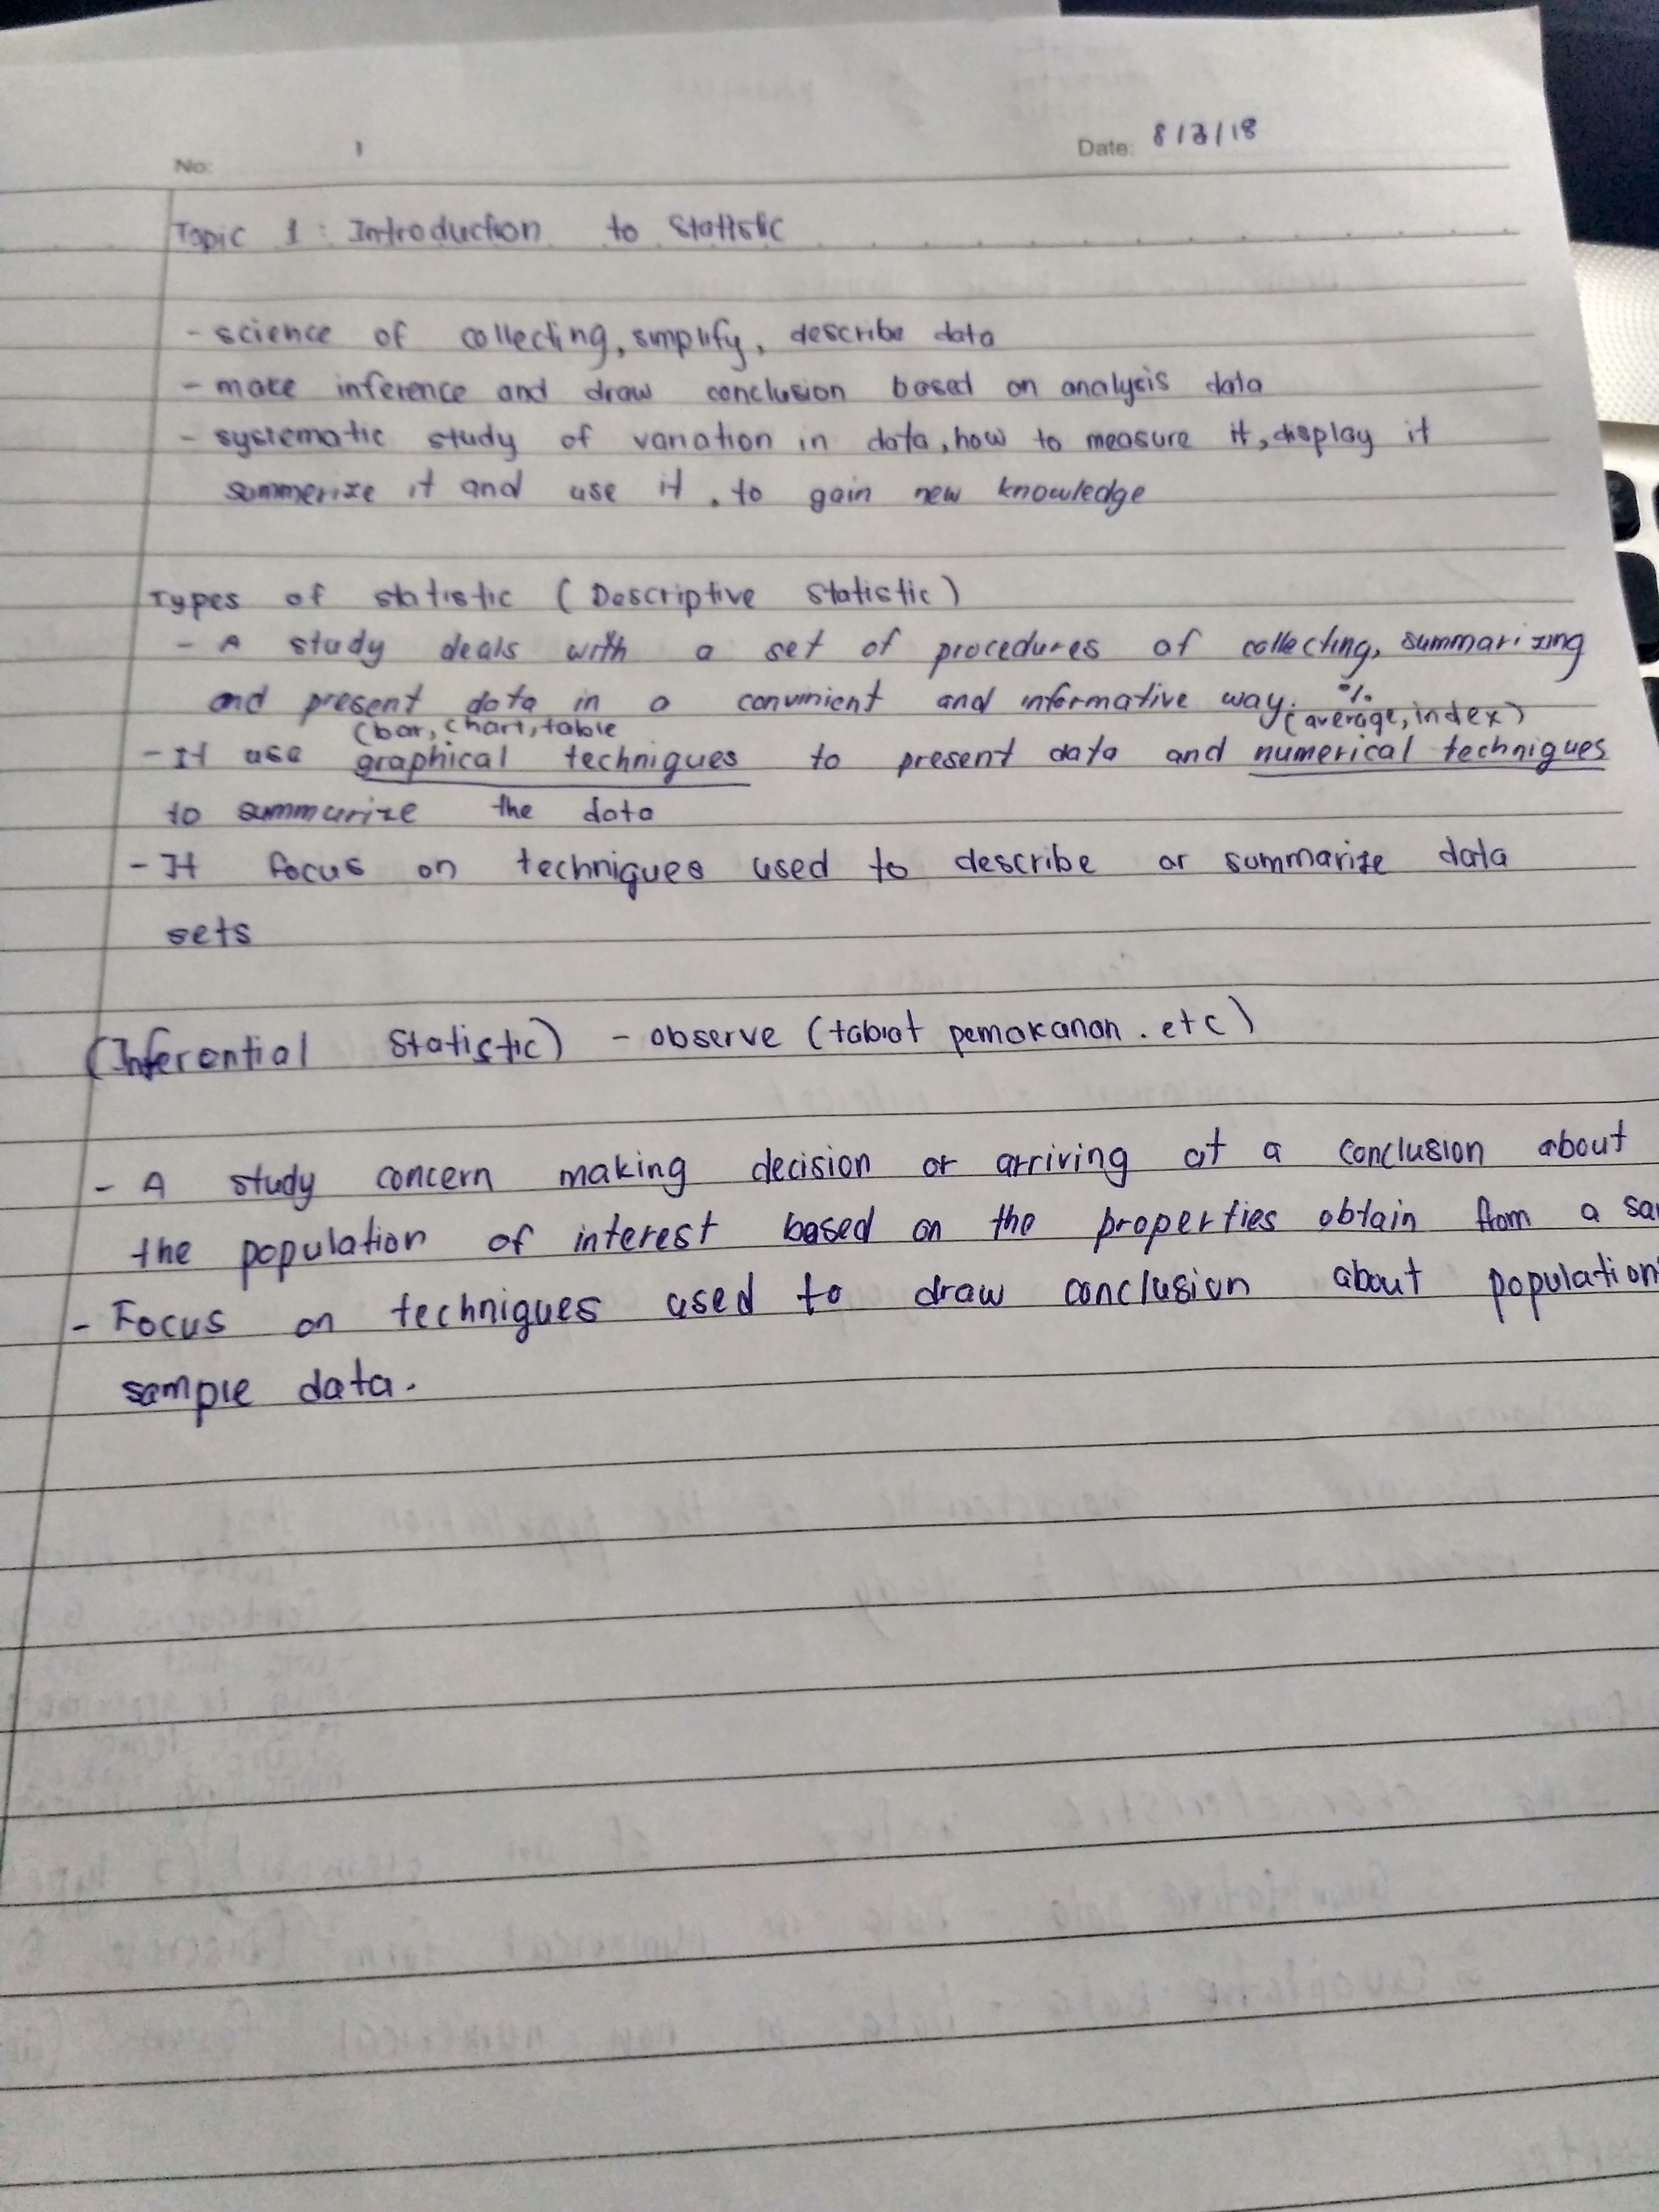 No: 1 Date: 8/3/18
Topic 1 : Introduction to Statistic
- science of collecting, simplify, describe data
- make inference and draw conclusion based on analysis data
- systematic study of variation in data, how to measure it, display it
summerize it and use it, to gain new knowledge
Types of statistic (Descriptive Statistic)
- A study deals with a set of procedures of collecting, summarizing
and present data in a convinient and informative way. %
(bar, chart, table (average, index)
- It use graphical techniques to present data and numerical techniques
to summarize the data
- It focus on techniques used to describe or summarize data
sets
(Inferential Statistic) - observe (tabiat pemakanan. etc)
- A study concern making decision or arriving at a conclusion about
the population of interest based on the properties obtain from a
- Focus on techniques used to draw conclusion about population
sample data.